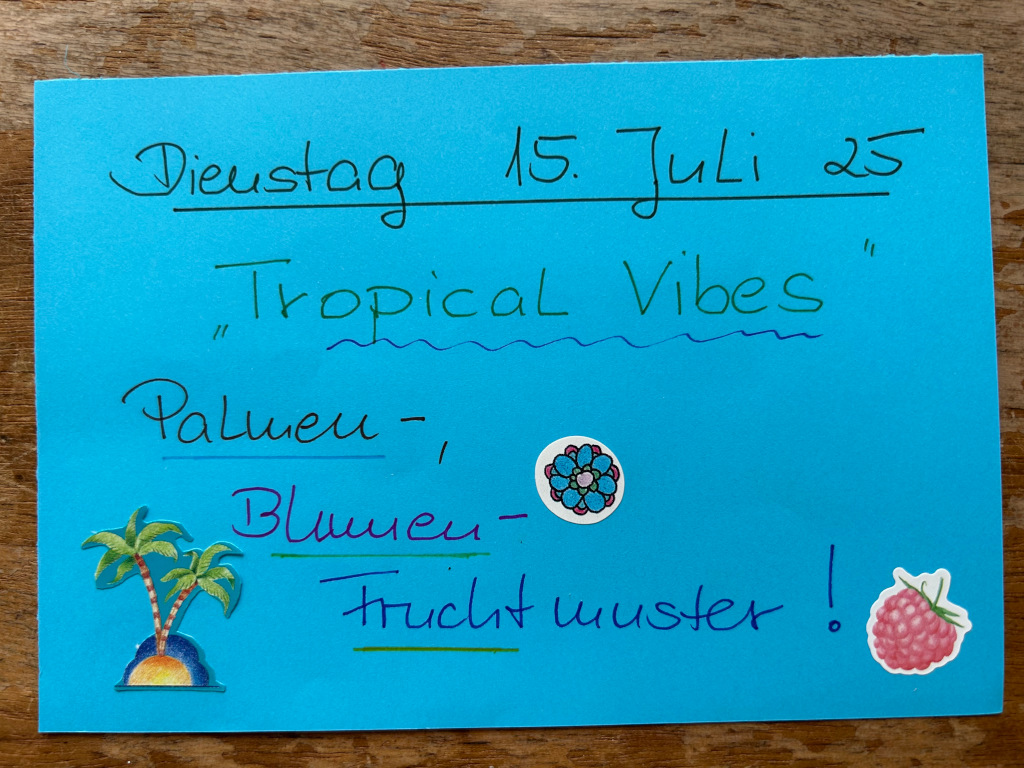 Dienstag 15. Juli 25
„Tropical Vibes"
Palmen-,
Blumen-
Fruchtmuster!